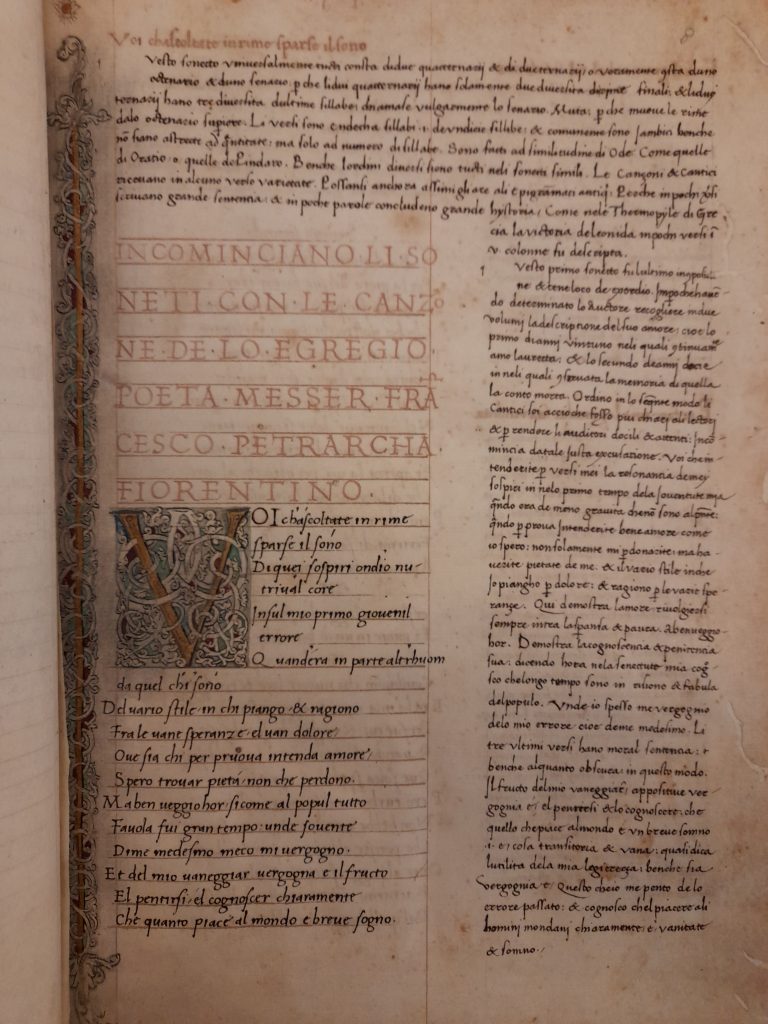 Voi chascoltate in rime sparse il sono
Vesto sonetto universalmente tucti consta di due quaternarij & di due ternarij: o voramente questa duno
octenario & duno senario. p che li dui quaternarij hano solamente due diversita
ternarij hano tre diversita dultime sillabe:
dalo octenacio supiore. Li versi sono endecha sillabi .i. de undicie sillabe: & comunemente sono Jambici benche
nō siano astrecti ad quantitate: ma solo ad numero di sillabe. Sono facti ad similitudine di Ode. Come quelle
di Oratio: o quelle de Pandaro. Benche lordini diversi siono tucti neli sonetti simili. Le Canzoni & Cantici
ricevano in alcuno verso varietate. Possansi anchora assimigliare ali epigramati antiqi: Peroche in pochi versi
servano grande sententia: & in poche parole concludeno grande hystoria: Come nele Thermopyle di Gre
cia la victoria de leonida in pochi versi ī
v. colonne fu descripta.
INCOMINCIANO·LI·SO
NETI·CON·LE·CANZo
NE·DE·LO·EGREGIO
POETA·MESSER·FRĀ
CESCO·PETRARCHA
FIORENTINO·
VOI chascoltate in rime
sparse il sono
Di quei sospiri ondio nu-
triva'l core
In sul mio primo giovenil
errore
Quand'era in parte altr'huom
da quel chi sono
Del vario stile in chi piango & ragiono
Fra le vane speranze e'l van dolore
Ove sia chi per pruova intenda amore
Spero trovar pieta non che perdono.
Ma ben veggio hor si come al popul tutto
Favola fui gran tempo: unde sovente
Di me medesmo meco mi vergogno.
Et del mio vaneggiar vergogna e il fructo
El pentirsi e'l cognoscer chiaramente
Che quanto piace al mondo e breve sogno.
Vesto primo sonetto fu lultimo
ne & tene loco de exordio. Impoche haven
do determinato lo Auctore recogliere in due
volumi la descriptione del suo amore: cioe lo
primo di anni vintuno neli quali
amo lauretta: & lo secundo de anni diece
in neli quali la memoria di quella
la conto morta. Ordino in lo modo li
Cantici soi accioche fosso piu chiari ali lectori
& p rendere li auditori docili & attenti: Inco
mincia da tale justa excusatione. Voi che in
tenderite p versi mei la resonancia de mey
sospiri in nelo primo tempo dela joventute mia
quando era de meno gravita che nō sono al
quando p prova intenderite bene amore come
io spero: non solamente mi pdonarite: ma ha
verite pietate de me. & il vario stile in che
io piangho p dolore: & ragiono p le varie spe
range. Qui demostra lamore rivolgiersi
sempre intra la speranza & paura. Aben veggio
hor. Demostra la cognoscencia & penitencia
sua: dicendo hora nela senectute mia cog
sco che longo tempo sono in risione & fabula
del populo. Unde io spesso me vergognio
delo mio errore cioe de me medesimo. Li
tre ultimi versi hano moral sentencia: &
benche alquanto obscura: in questo modo.
Il fructo del mio vaneggiare: appositive ver
gognia e: el penterse & lo cognoscere: che
quello che piace al mondo e un breve somno
.i. e: cosa transitoria & vana: quasi dica
lutilita dela mia legiereza: benche sia
vergognia e: Questo che io me pento de lo
errore passato: & cognosco chel piacere ali
homini mondani chiaramente: e: vanitate
& somno.